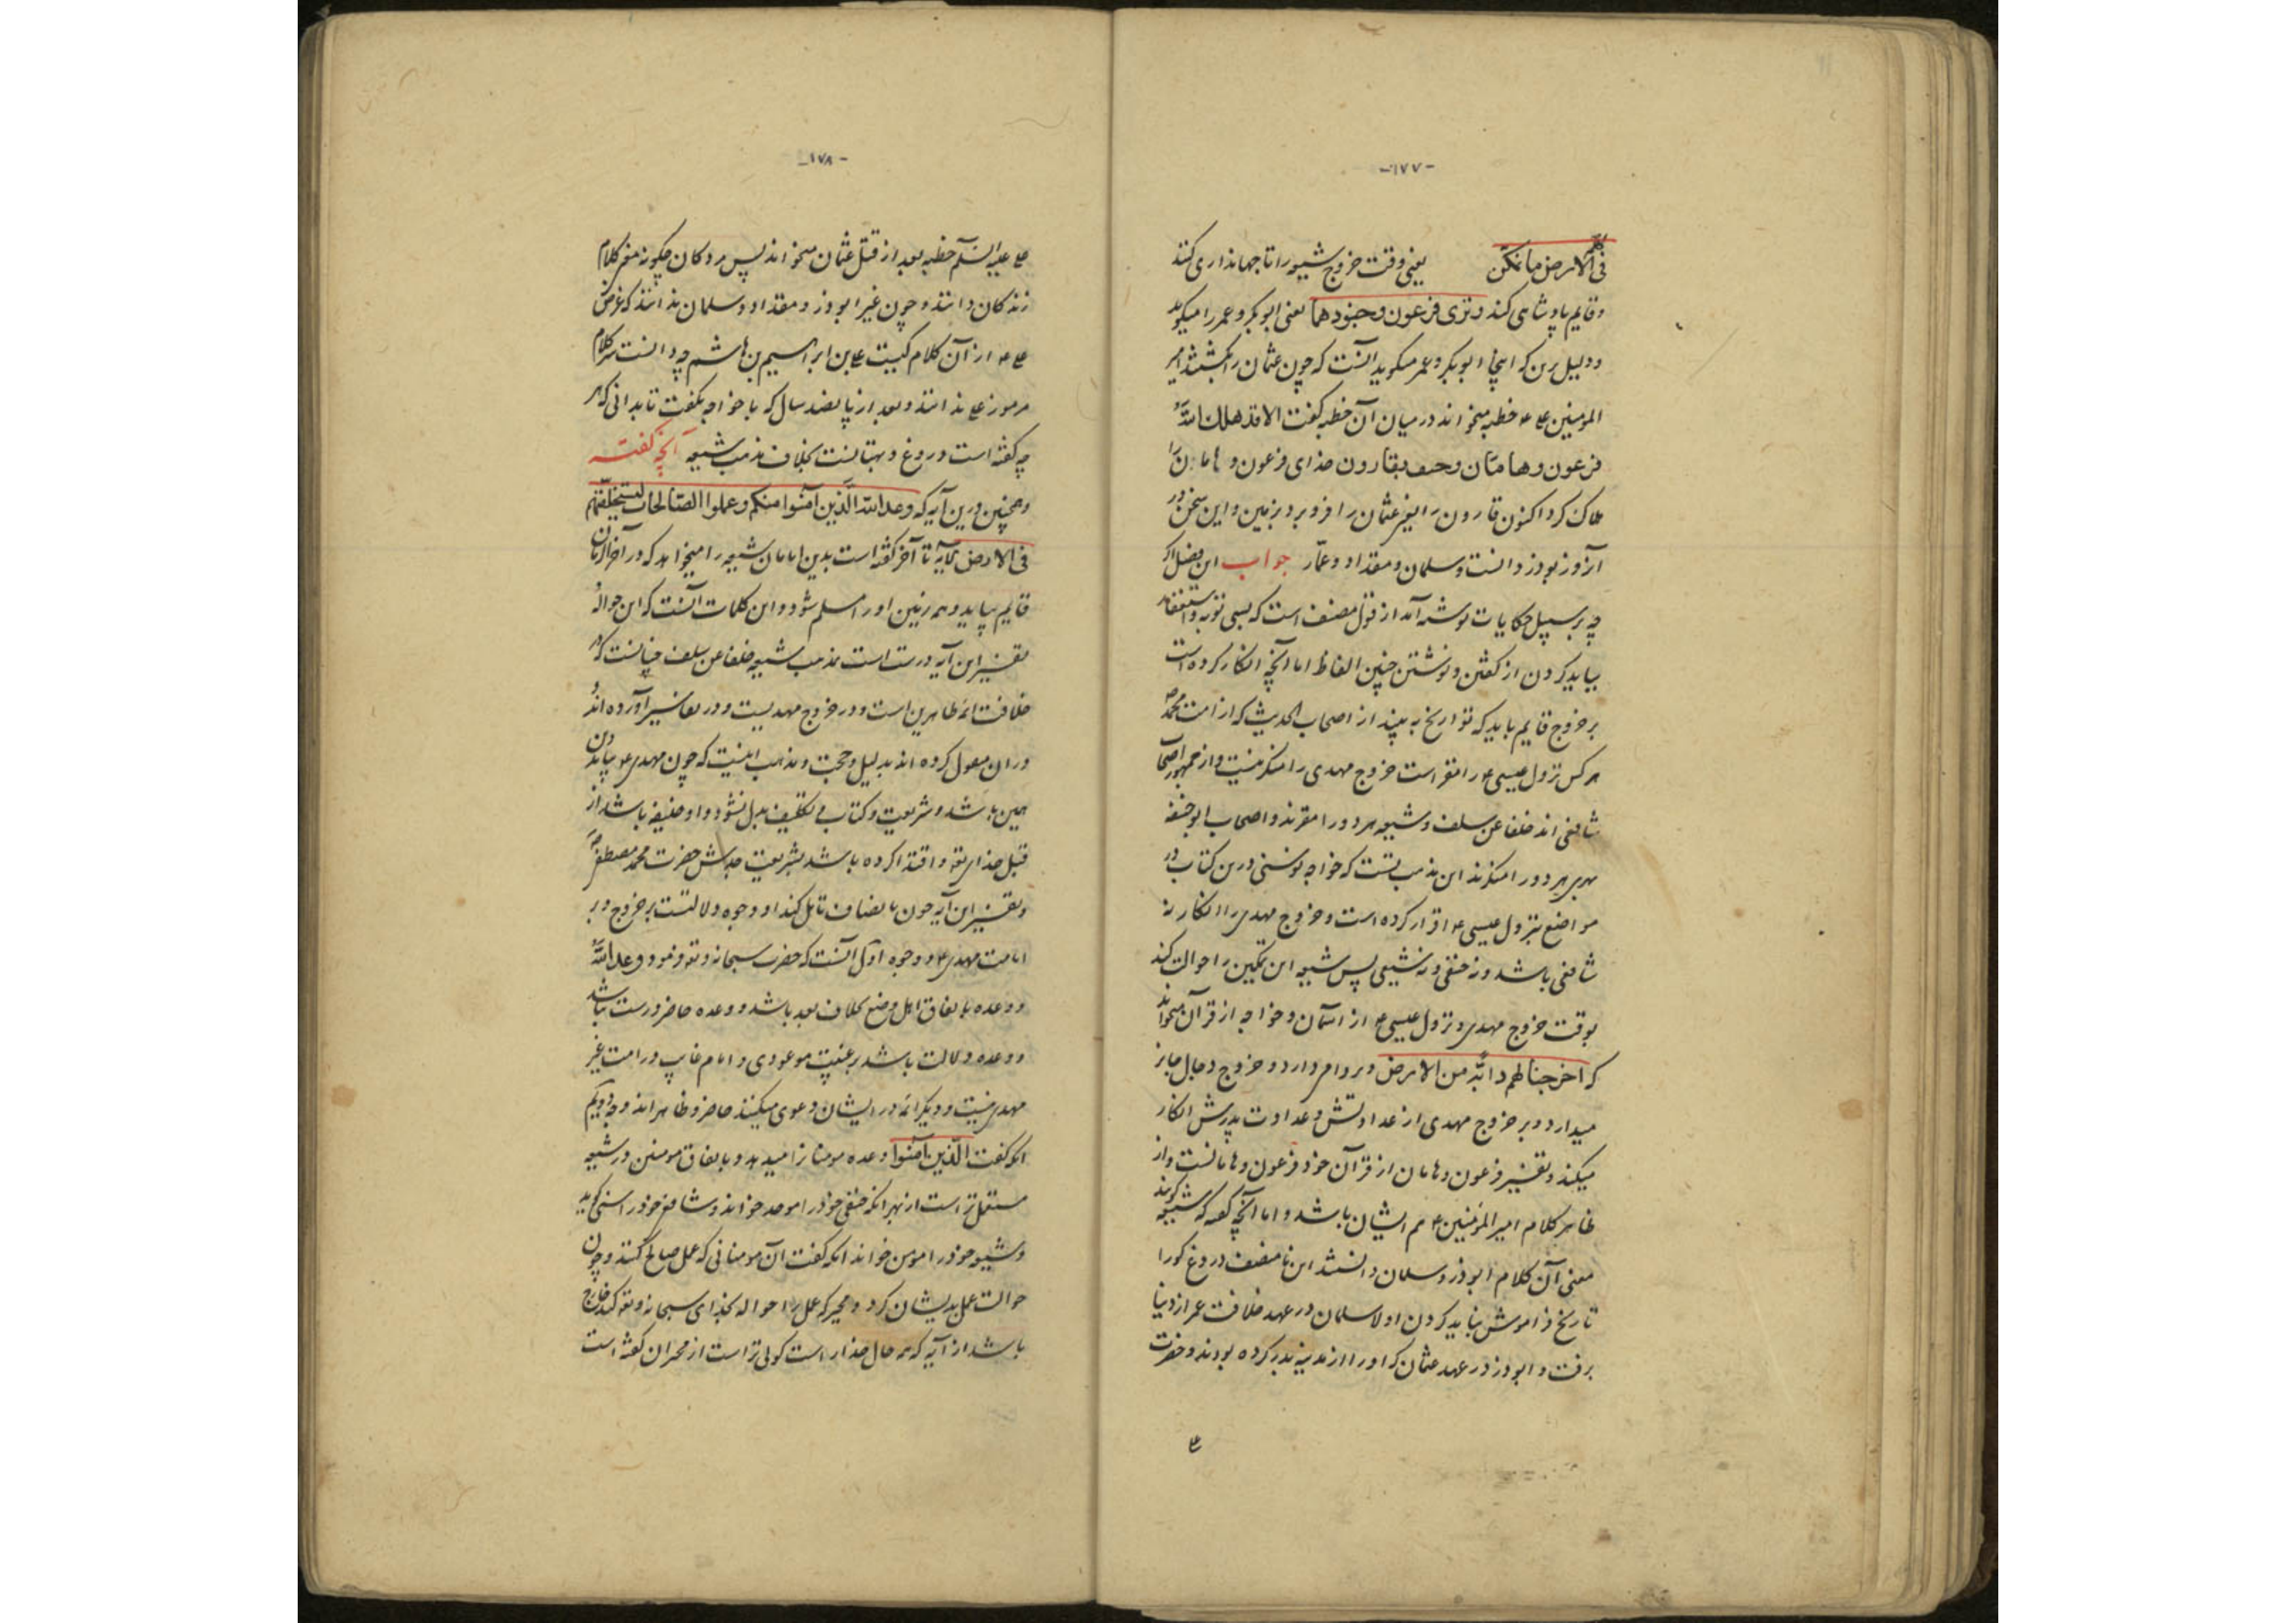 -۱۷۷-
فی الارض ما نمکن یعنی وقت خروج شیعه را تا جهانداری کنند
و قایم پادشاهی کند و نری فرعون و جنودهما یعنی ابوبکر و عمر را میگوید
و دلیل برین که اینجا ابوبکر و عمر میگوید آنست که چون عثمان را بکشتند امیر
المومنین علی ع خطبه میخواند در میان آن خطبه گفت الا قد هلك الله
فرعون و هامان و خسف بقارون خدای فرعون و هامان را
هلاک کرد اکنون قارون را یعنی عثمان را فرو برد بزمین و این سخن در
آن روز بوذر دانست و سلمان و مقداد و عمّار جواب این فصل اگر
چه بر سبیل حکایات نوشته آمد از قول مصنف است که بسی توبه و استغفار
بباید کردن از گفتن و نوشتن چنین الفاظ اما آنچه انکار کرده است
بر خروج قایم باید که تواریخ به بیند از اصحاب الحدیث که از امت محمد ص
هر کس نزول عیسی ع را مقر است خروج مهدی را منکر نیست و از جمهور اصحاب
شافعی اند خلفا عن سلف و شیعه هر دو را مقرند و اصحاب ابوحنیفه
هر دو را منکرند این مذهب نیست که خواجه نوسنی درین کتاب در
مواضع بنزول عیسی ع اقرار کرده است و خروج مهدی را انکار نه
شافعی باشد و نه حنفی و نه شیعی پس شیعه این تمکین را حوالت کند
بوقت خروج مهدی و نزول عیسی ع از آسمان و خواجه از قرآن میخواند
که اخرجنا لهم دابّه من الارض و بر دابه دارد و خروج دجال جایز
میدارد و بر خروج مهدی از عداوتش و عداوت پدرش انکار
میکند و تفسیر فرعون و هامان از قرآن خود فرعون و هامانست و از
ظاهر کلام امیر المؤمنین ع هم ایشان باشد و اما آنچه گفته که شیعه گویند
معنی آن کلام ابوذر و سلمان دانستند این نامنصف دروغ گو را
تاریخ فراموش نباید کردن اولا سلمان در عهد خلافت عمر از دنیا
برفت و ابوذر در عهد عثمان که او را از مدینه بدر کرده بودند و حضرت
-۱۷۸-
علی علیه السّلم خطبه بعد از قتل عثمان میخواند پس مردکان چگونه مغز کلام
زندکان دانند و چون غیر ابوذر و مقداد و سلمان ندانند که غرض
علی ع از آن کلام کیست علی بن ابراهیم بن هاشم چه دانست سر کلام
مرموز علی ندانند و بعد از پانصد سال که با خواجه بگفت تا بدانی که هر
چه گفته است دروغ و بهتانست بخلاف مذهب شیعه آنچه گفته
و همچنین درین آیه که وعد الله الّذین آمنوا منکم و عملوا الصّالحات لیستخلفنّهم
فی الارض الآیه تا آخر گفته است بدین امامان شیعه را میخواهد که در آخرالزمان
قایم بیاید و همه زمین او را مسلم شود و این کلمات آنست که این حواله
تفسیر این آیه درست است مذهب شیعه خلفا عن سلف چنانست که در
خلافت ائمه طاهرین است و در خروج مهدیست و در تفاسیر آورده اند
و در آن معول کرده اند بدلیل و حجت و مذهب اینست که چون مهدی ع بیاید دین
همین باشد و شریعت و کتاب و تکلیف بدل نشود و او خلیفه باشد از
قبل خدای تعه و اقتدا کرده باشد بشریعت جدش حضرت محمد مصطفی ص
و تفسیر این آیه چون بانصاف تامل کند او وجوه دلالتست بر خروج و بر
امامت مهدی ع و وجوه اول آنست که حضرت سبحانه و تعه فرمود وعد الله
و وعده باتفاق اهل وضع بخلاف نقد باشد و وعده حاضر درست نباشد
و وعده دلالت باشد بر غیبت موعودی و امام غایب در امت غیر
مهدی نیست و دیگر ائمه در ایشان دعوی میکنند حاضر و ظاهر اند وجه دویم
انکه گفت الّذین آمنوا وعده مومنانرا میدهد و باتفاق مومنین در شیعه
مستقل تر است از بهر انکه حنفی خود را موحد خواند و شافعی خود را سنی گوید
و شیعه خود را مومن خواند انکه گفت آن مومنانی که عمل صالح کنند و چون
حوالت عمل بدیشان کرد و مجبر که عمل را حواله بخدای سبحانه و تعه کند خارج
باشد از آیه که همه حال خدا راست کولی تراست از مجبران گفته است
ع